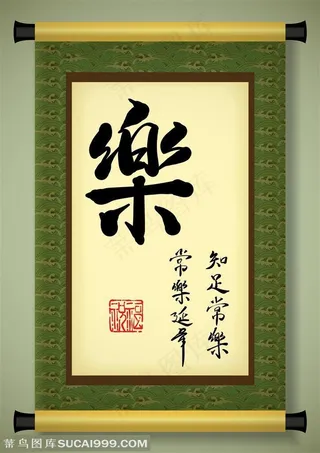 樂
知足常樂
常樂延年
菜鸟图库SUCAI999.COM